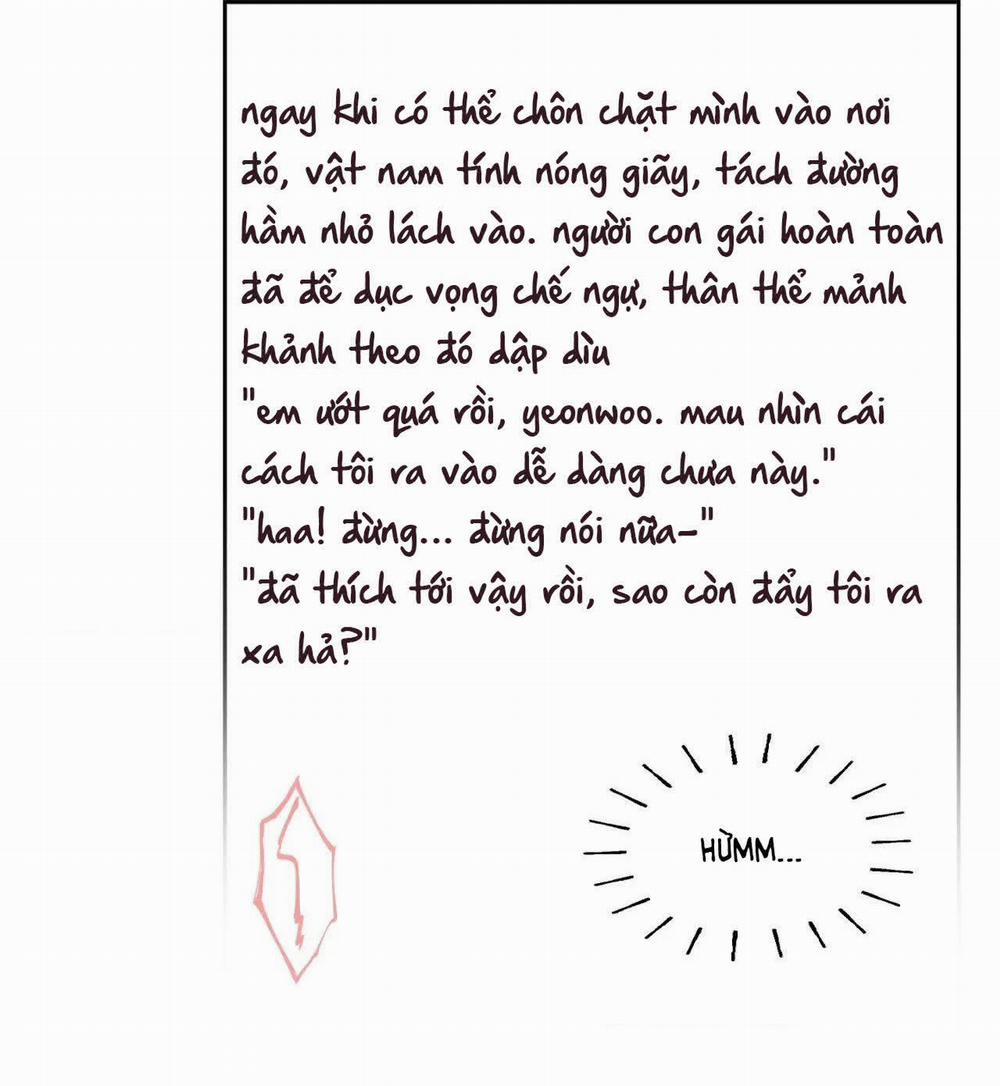 ngay khi có thể chôn chặt mình vào nơi
đó, vật nam tính nóng giãy, tách đường
hầm nhỏ lách vào. người con gái hoàn toàn
đã để dục vọng chế ngự, thân thể mảnh
khảnh theo đó dập dìu
"em ướt quá rồi, yeonwoo. mau nhìn cái
cách tôi ra vào dễ dàng chưa này."
"haa! đừng... đừng nói nữa-"
"đã thích tới vậy rồi, sao còn đẩy tôi ra
xa hả?"
HỪMM...